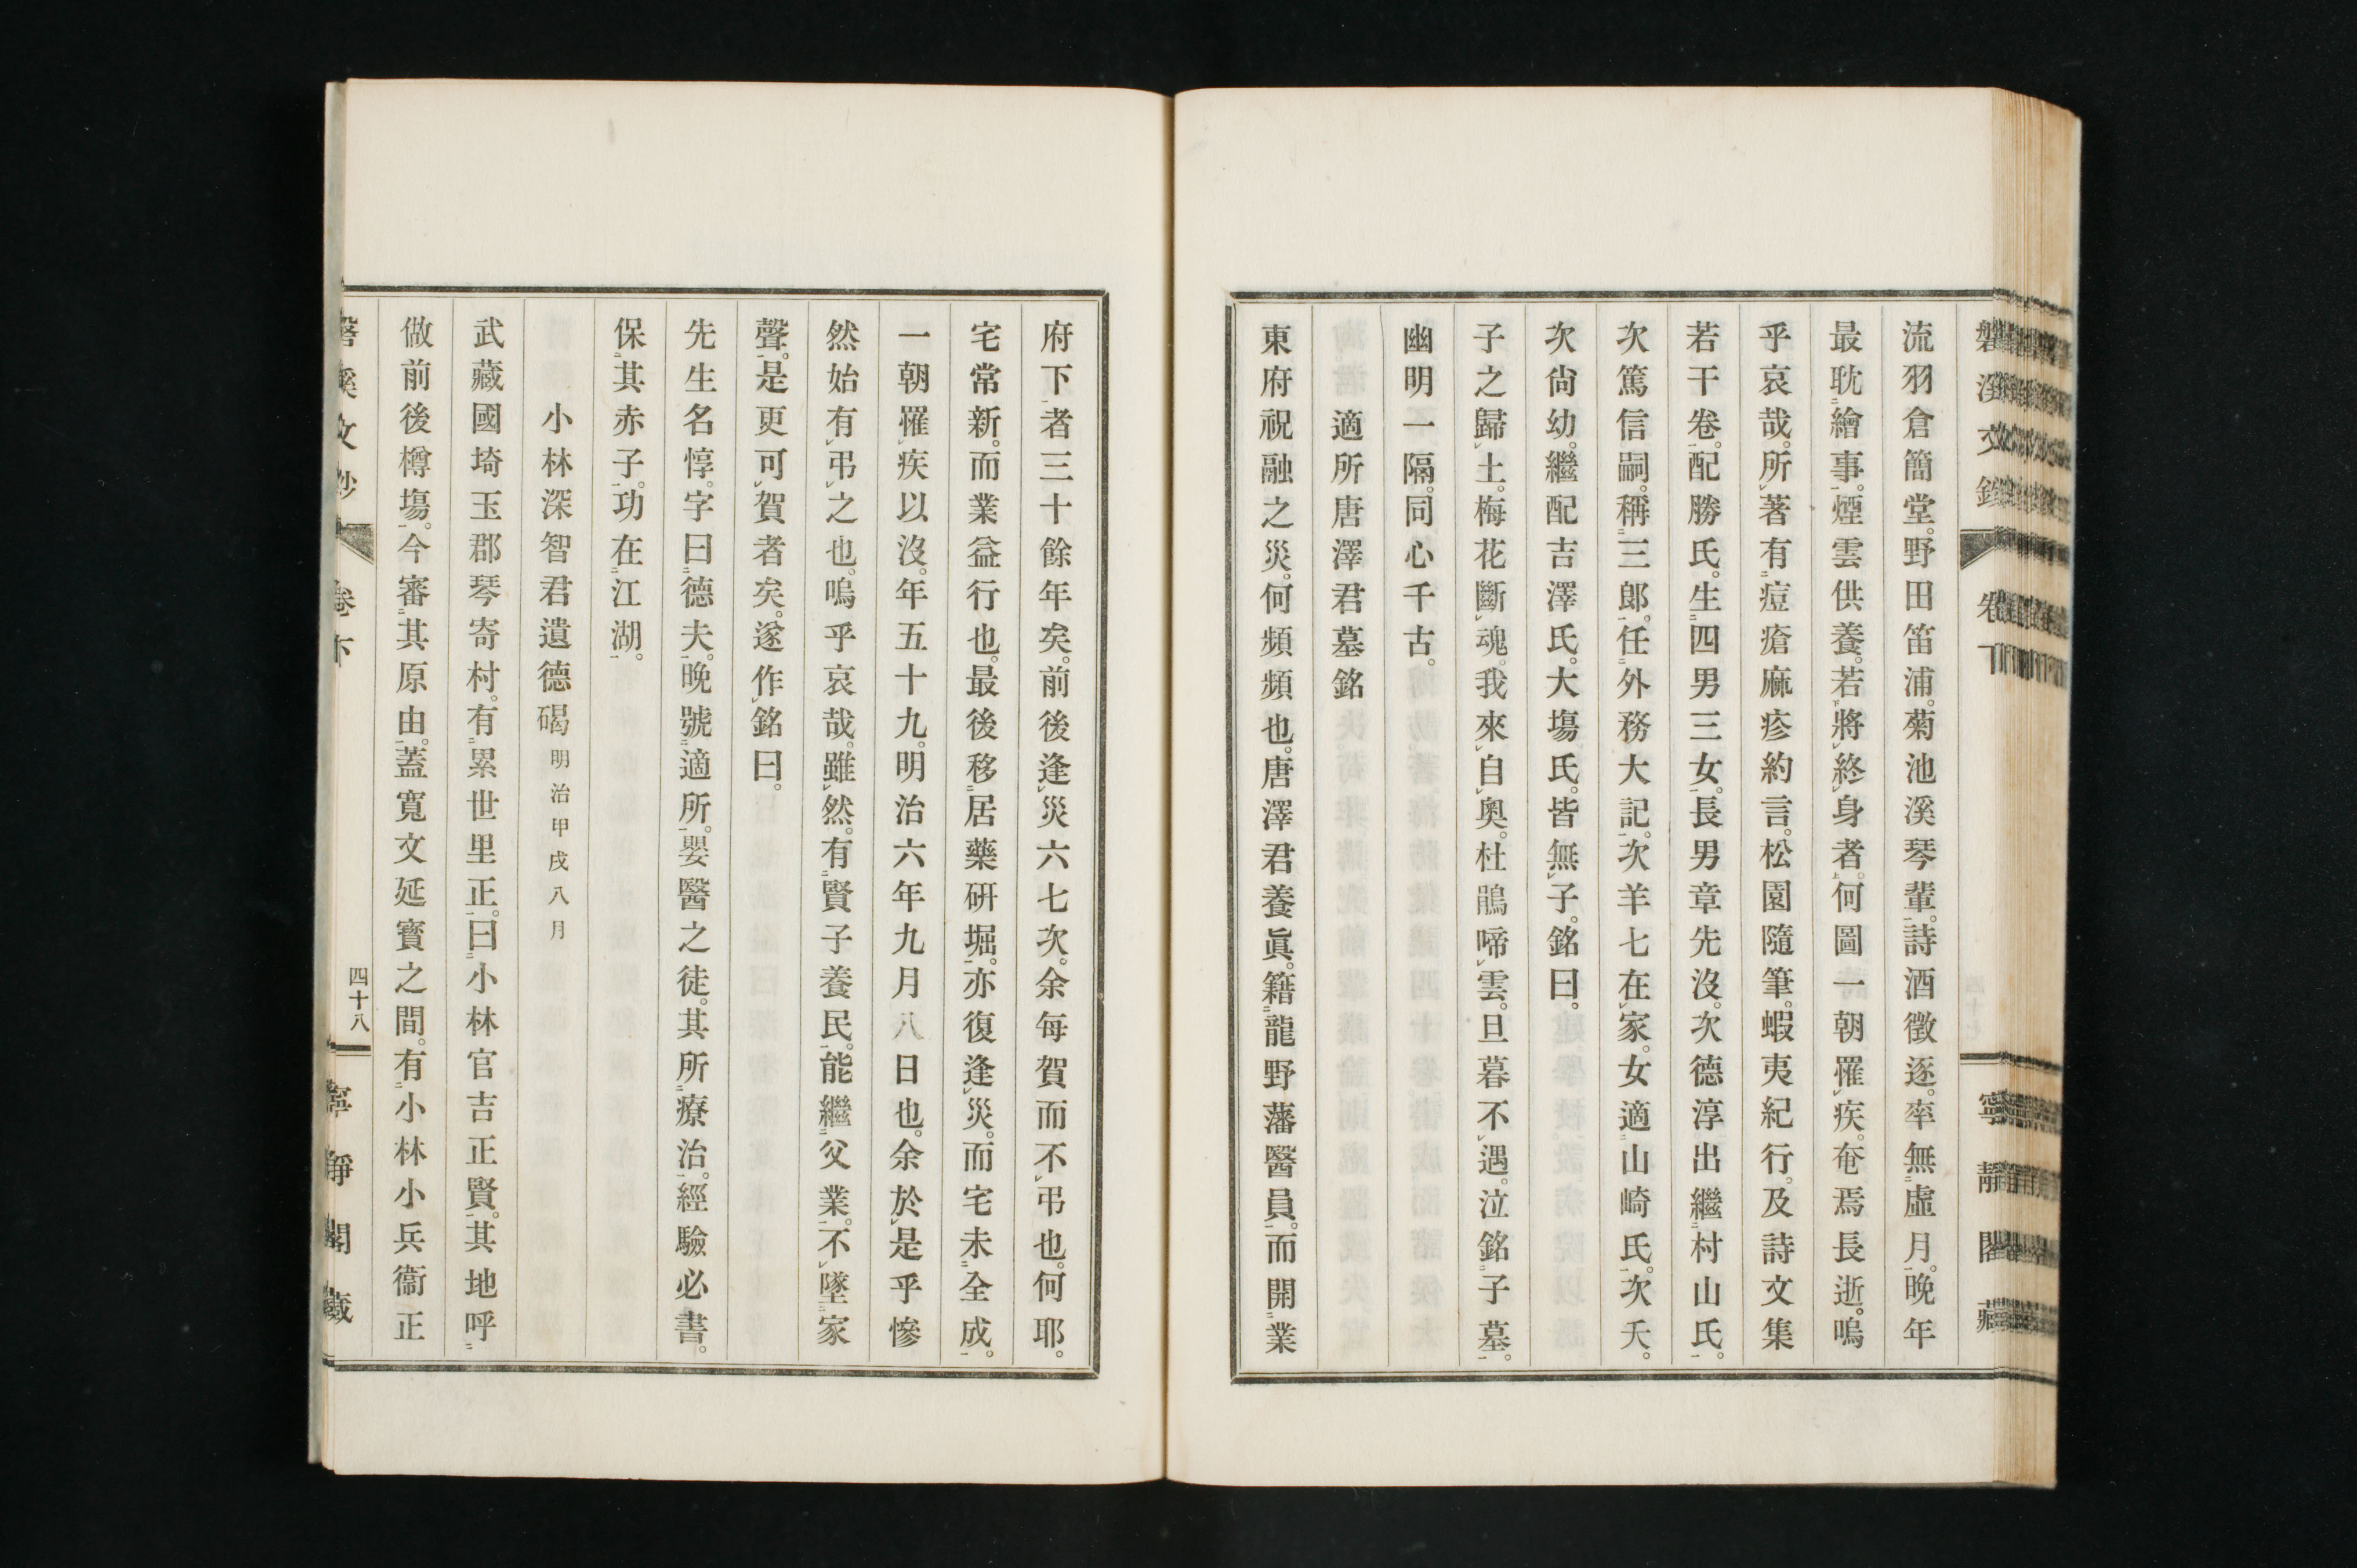 磐溪文鈔 卷下 寧靜閣藏
流羽倉簡堂。野田笛浦。菊池溪琴輩。詩酒徵逐。率無虛月。晚年
最耽繪事。煙雲供養。若將終身者。何圖一朝罹疾。奄焉長逝。嗚
乎哀哉。所著有痘瘡麻疹約言。松園隨筆。蝦夷紀行。及詩文集
若干卷。配勝氏。生四男三女。長男章先沒。次德淳出繼村山氏。
次篤信嗣。稱三郎。任外務大記。次羊七在家。女適山崎氏。次夭。
次尙幼。繼配吉澤氏。大塲氏。皆無子。銘曰。
子之歸土。梅花斷魂。我來自奧。杜鵑啼雲。旦暮不遇。泣銘子墓。
幽明一隔。同心千古。
適所唐澤君墓銘
東府祝融之災。何頻頻也。唐澤君養眞。籍龍野藩醫員。而開業
府下者三十餘年矣。前後逢災六七次。余每賀而不弔也。何耶。
宅常新。而業益行也。最後移居藥研堀。亦復逢災。而宅未全成。
一朝罹疾以沒。年五十九。明治六年九月八日也。余於是乎慘
然始有弔之也。嗚乎哀哉。雖然。有賢子養民。能繼父業。不墜家
聲。是更可賀者矣。遂作銘曰。
先生名惇。字曰德夫。晚號適所。嬰醫之徒。其所療治。經驗必書。
保其赤子。功在江湖。
小林深智君遺德碣 明治甲戌八月
武藏國埼玉郡琴寄村。有累世里正。曰小林官吉正賢。其地呼
做前後樽塲。今審其原由。蓋寬文延寶之間。有小林小兵衞正
磐溪文鈔 卷下 四十八 寧靜閣藏